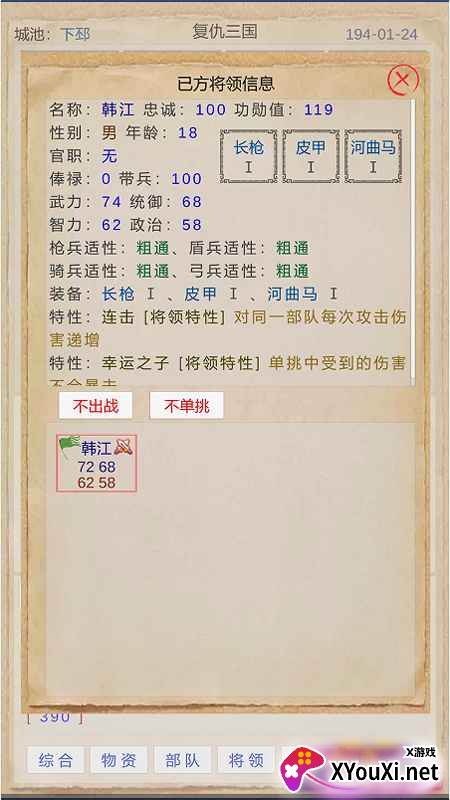 城池：下邳 复仇三国 194-01-24
己方将领信息
名称：韩江 忠诚：100 功勋值：119
性别：男 年龄：18
官职：无
俸禄：0 带兵：100
武力：74 统御：68
智力：62 政治：58
长枪 皮甲 河曲马
I I I
枪兵适性：粗通、盾兵适性：粗通
骑兵适性：粗通、弓兵适性：粗通
装备：长枪 I 、皮甲 I 、河曲马 I
特性：连击 [将领特性] 对同一部队每次攻击伤
害递增
特性：幸运之子 [将领特性] 单挑中受到的伤害
不会暴击
不出战 不单挑
韩江
72 68
62 58
[ 390 ]
综合 物资 部队 将领
X游戏
XYouXi.net